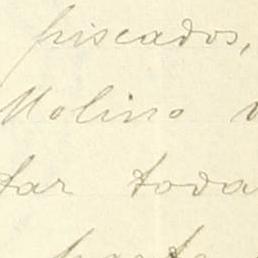 piscados,
Molino
tar toda